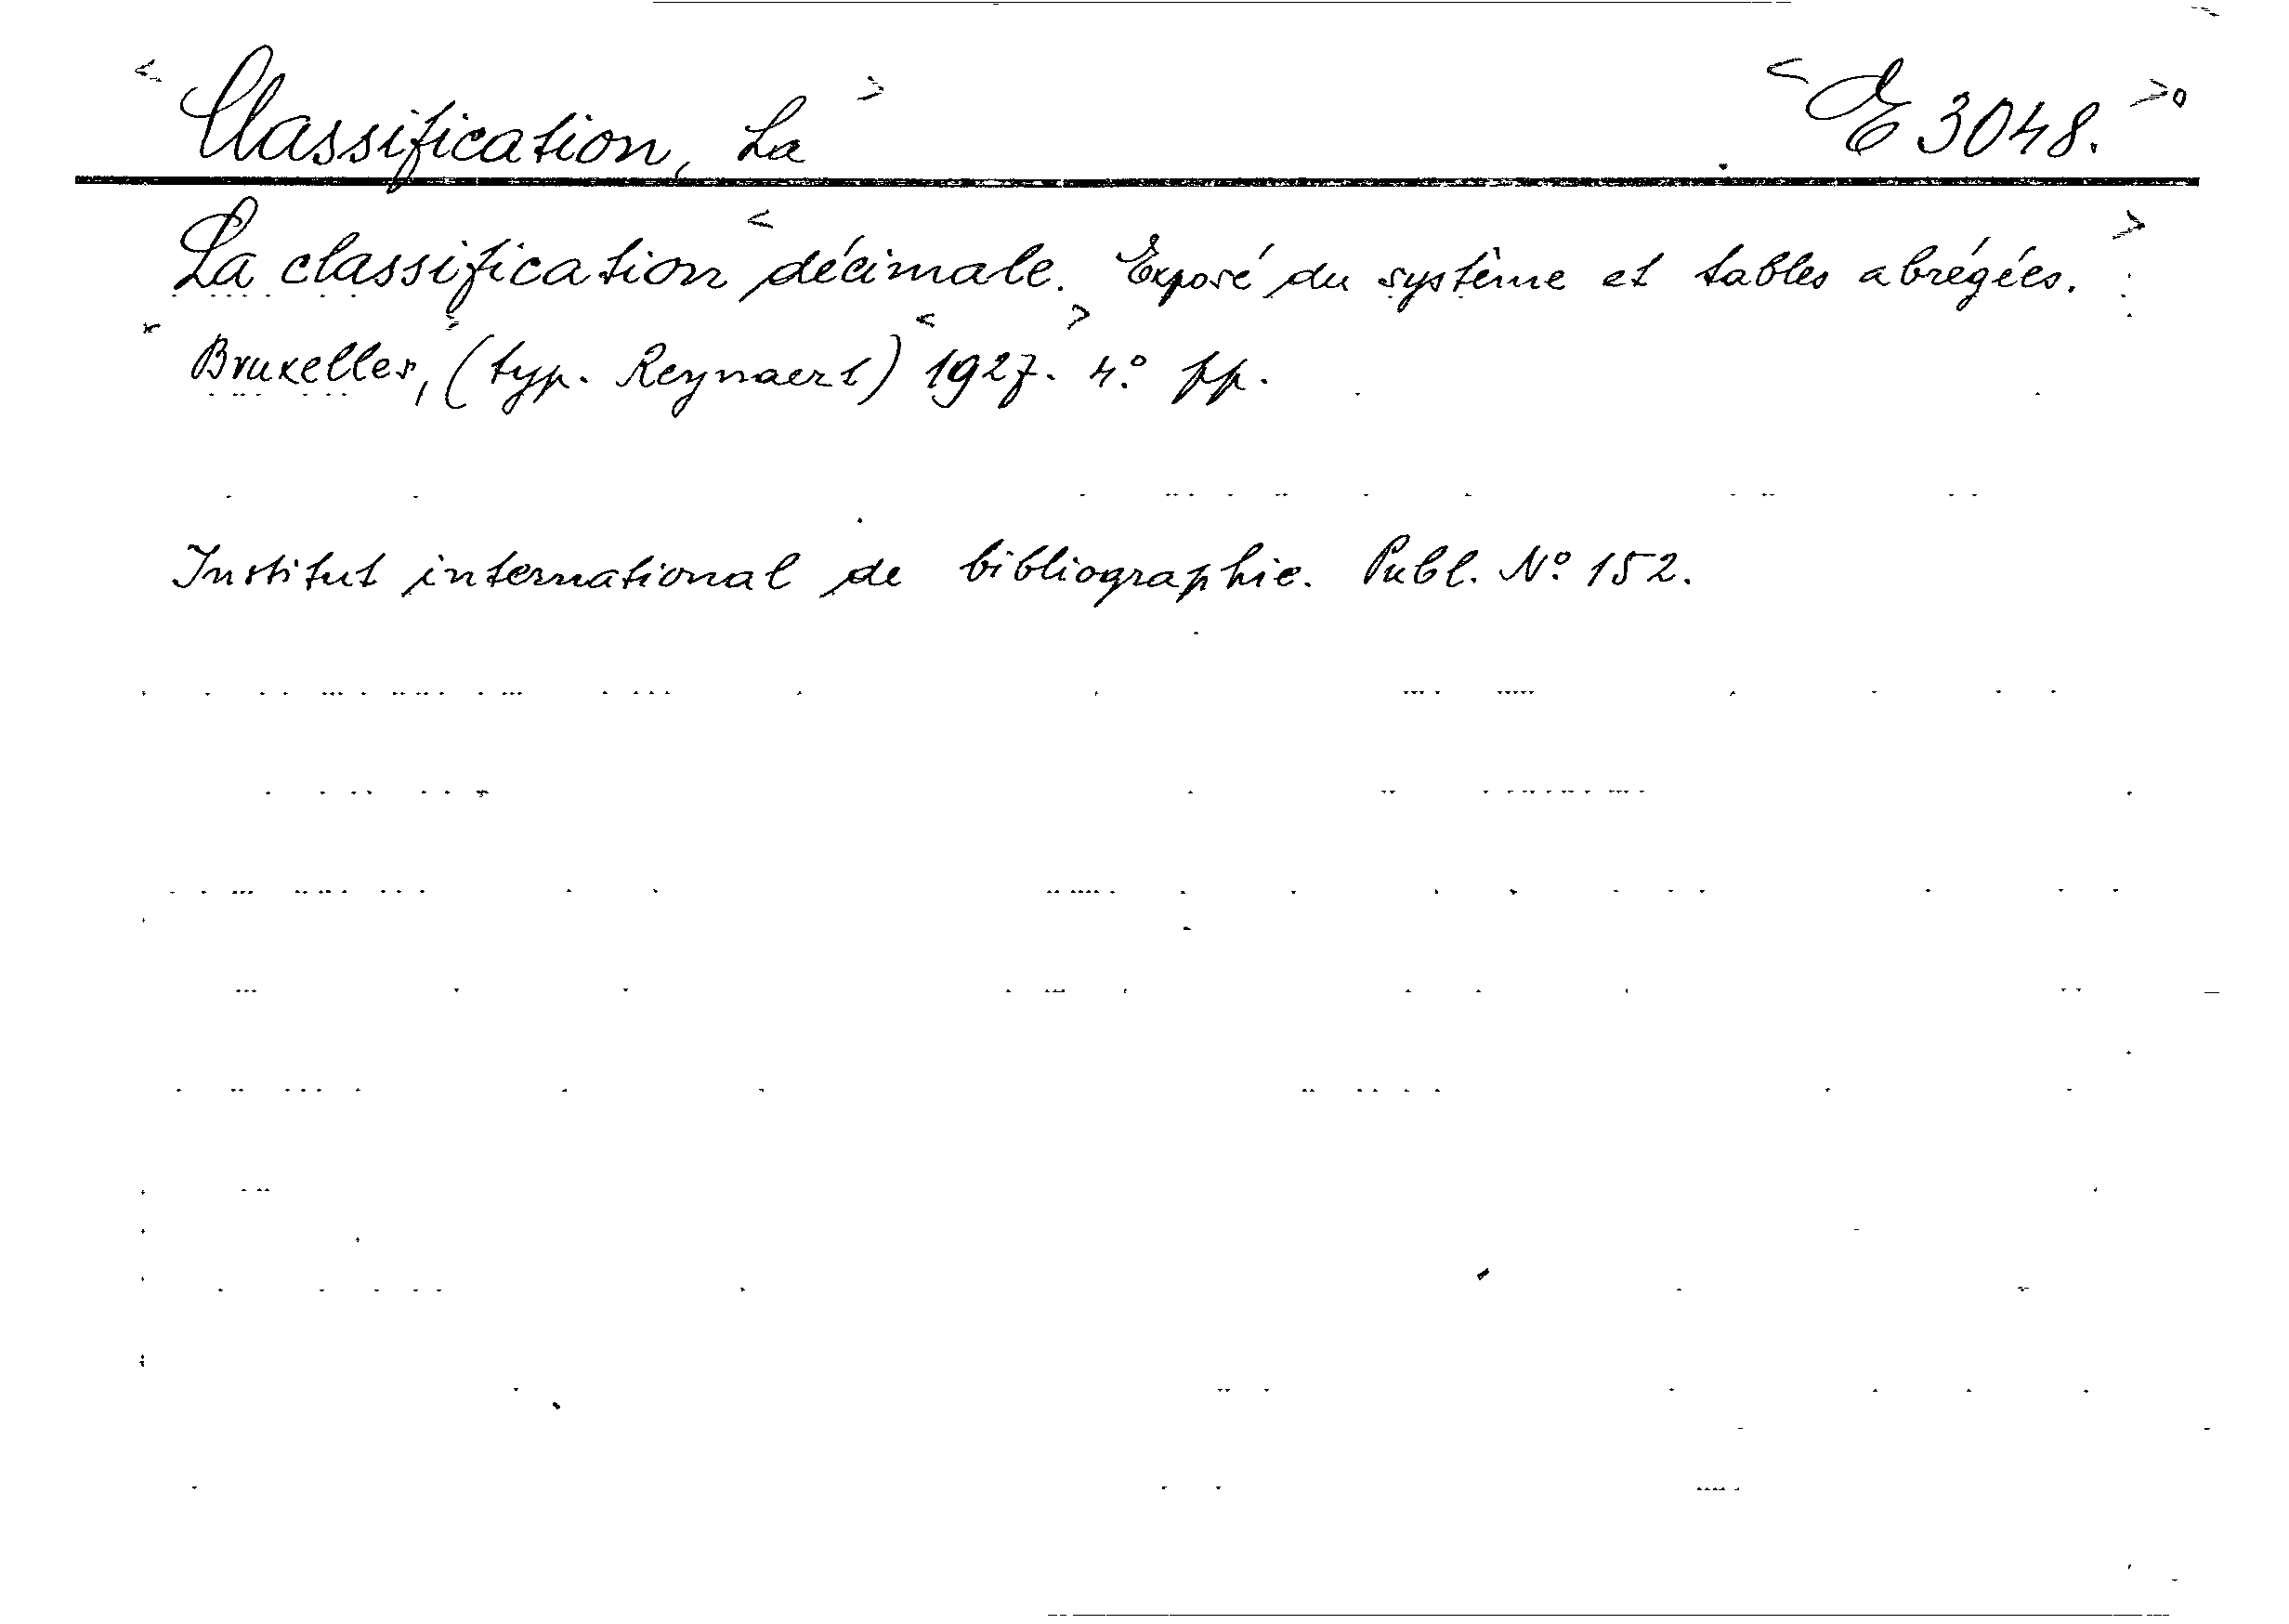 Classification, La E 3048.
La classification décimale. Exposé du système et tables abrégées.
Bruxelles, (typ. Reynaert) 1927. 4:o pp.
Institut international de bibliographie. Publ. No: 152.